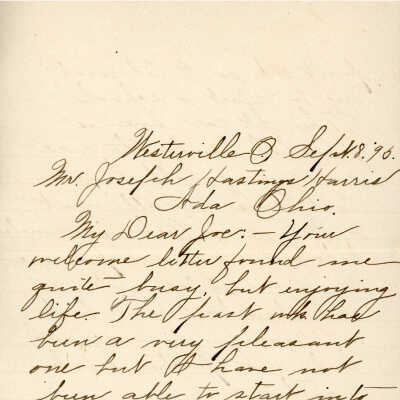 Westerville O. Sept. 8. '90.
Mr. Joseph Hastings Harris
Ada Ohio.
My Dear Joe:- Your
welcome letter found me
quite busy, but enjoying
life. The past wk. has
been a very pleasant
one but I have not
been able to start into